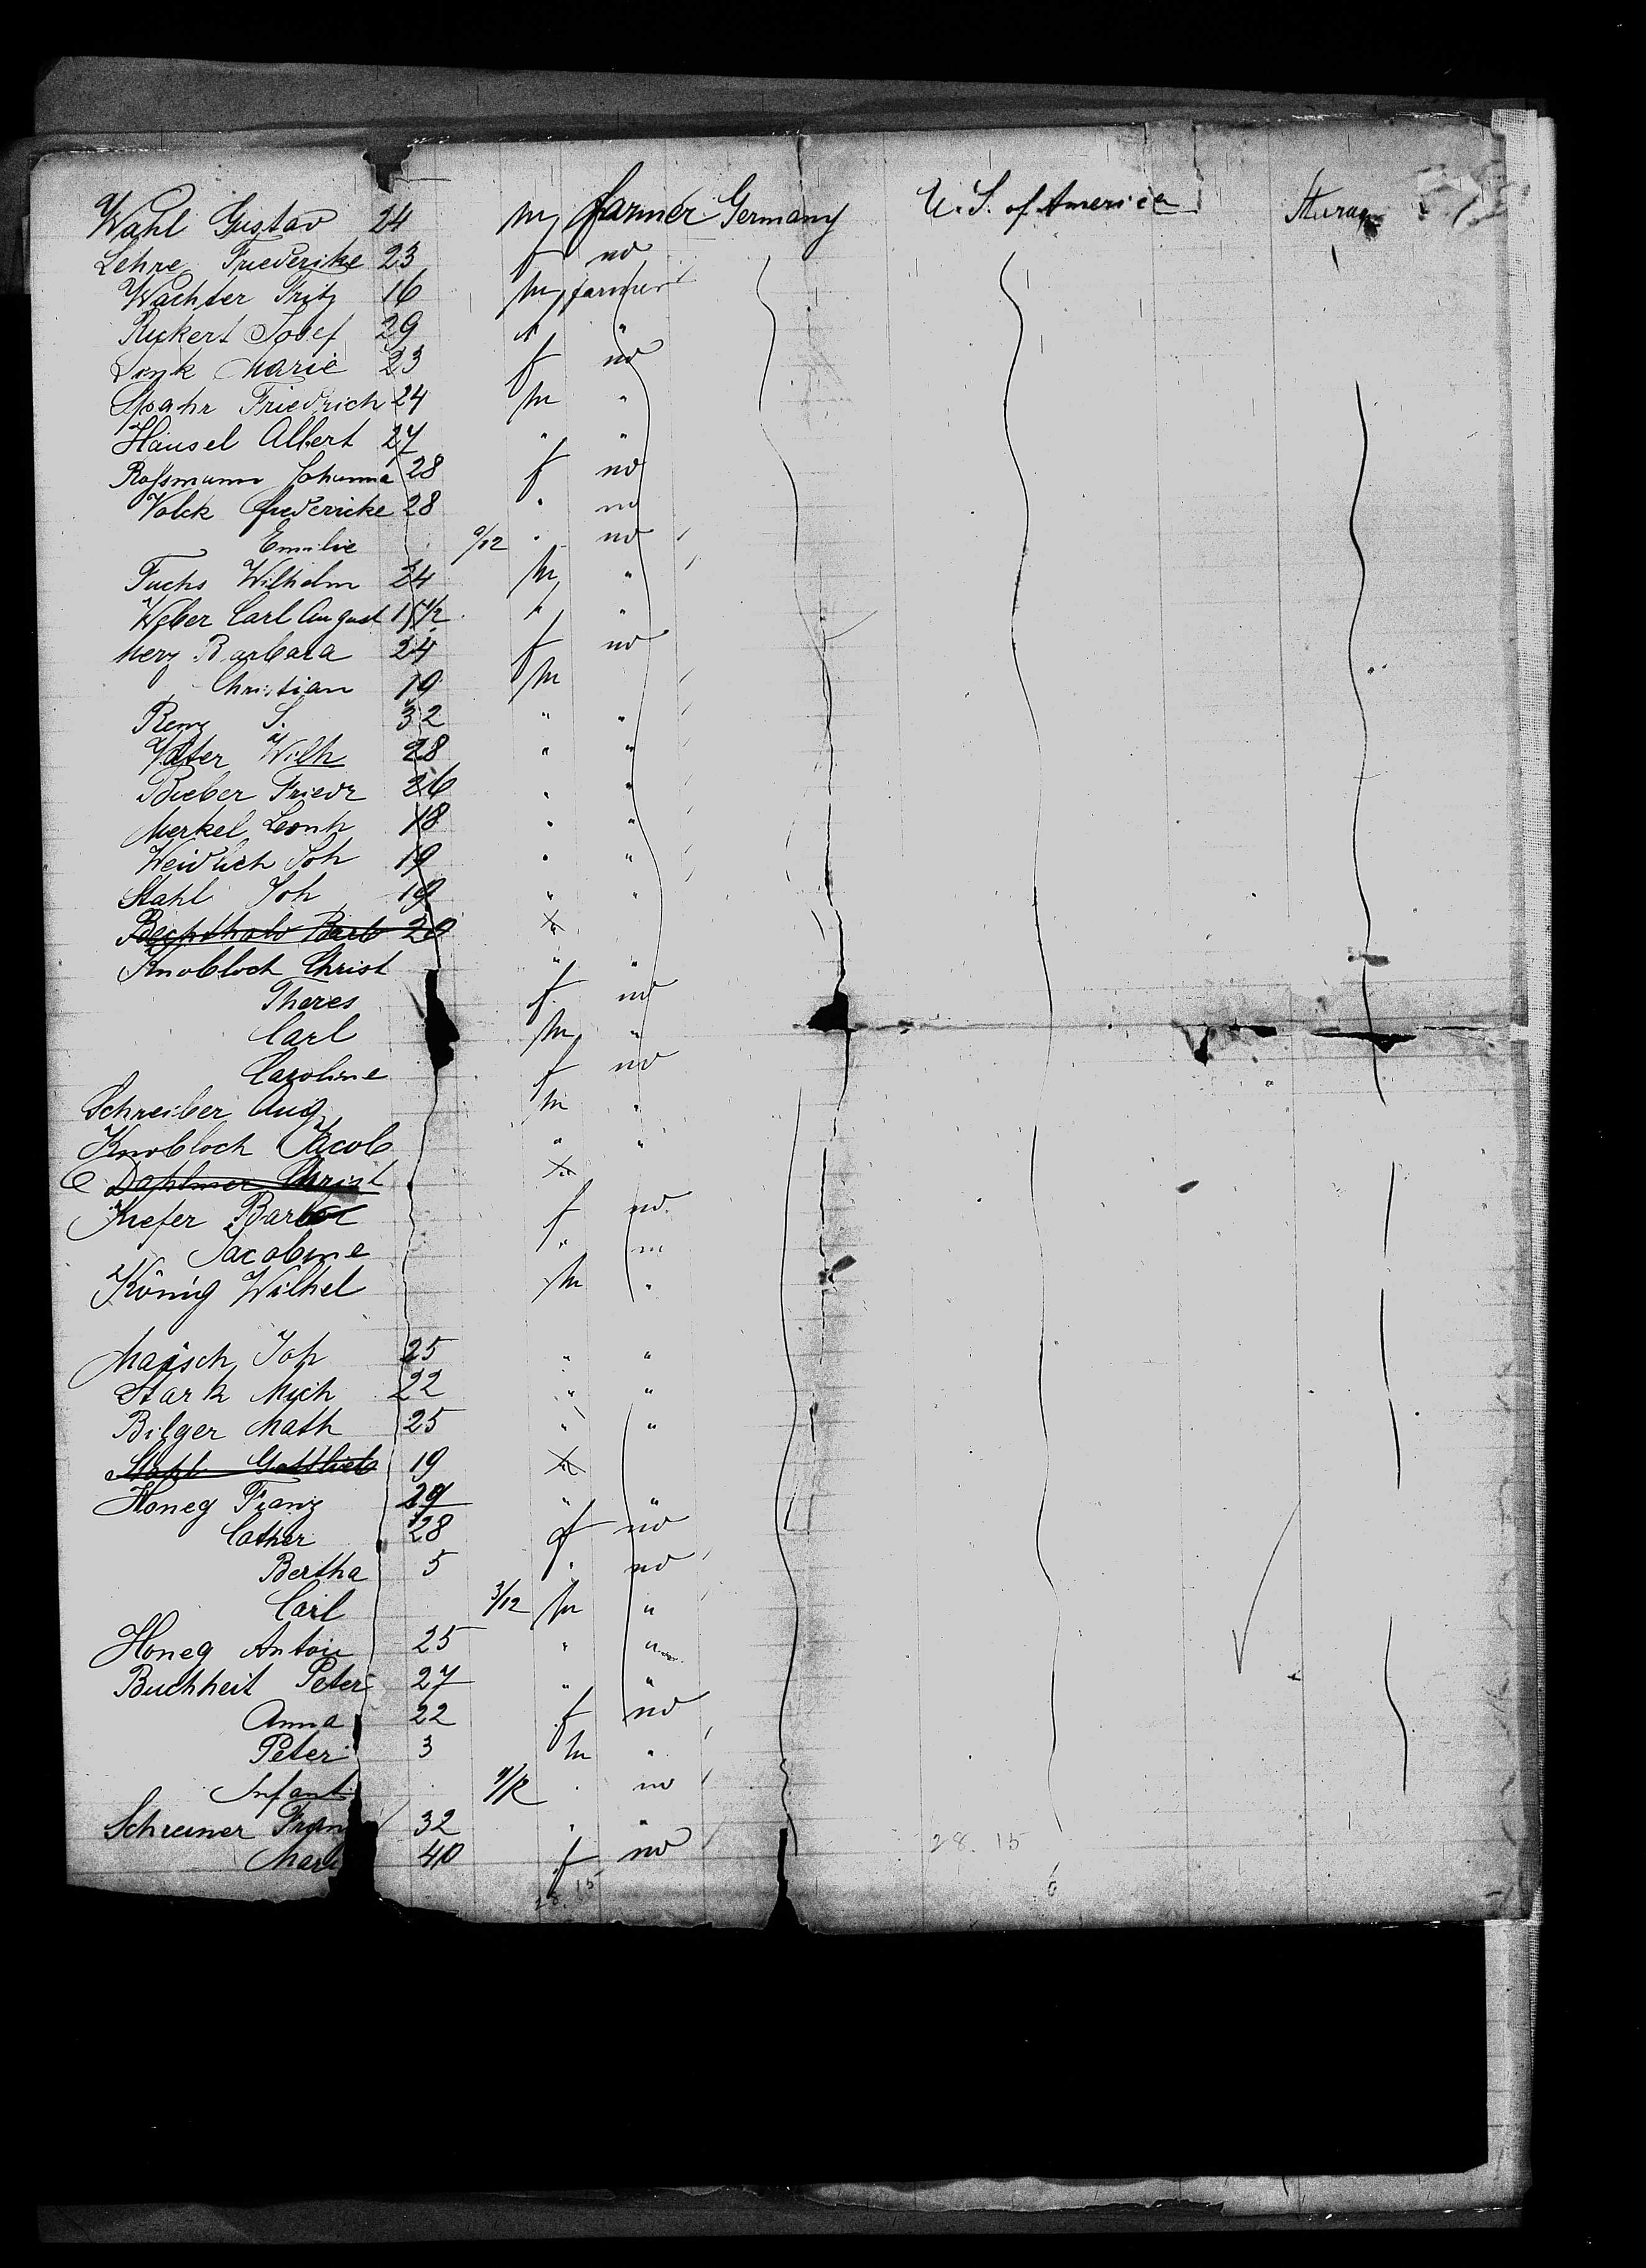 Wahl Gustav 24 m farmer Germany U. S. of America
Lehre Friederike 23 f no
Wachter Fritz 16 m farmer
Rickert Josef 29 " "
Link Marie 23 f no
Spahr Friedrich 24 m "
Häusel Albert 27 " "
Roßmann Johanna 28 f no
Volck Friederike 28 " no
Emilie 9/12 " no
Fuchs Wilhelm 24 m "
Weber Carl August 15 1/2 " "
Merz Barbara 24 f no
Christian 19 m
Renz S. 32 " "
Vater Wilh 28 " "
Bieber Friedr 26 " "
Merkel Leonh 18 " "
Weidlich Joh 19 " "
Stahl Joh 19 " "
Bechthold Barb 20
Knobloch Christ " "
Theres f no
Carl m "
Caroline f no
Schreiber Aug m "
Knobloch Jacob " "
Christ
Kiefer Barbar f no
Jacobine " no
König Wilhel m "
Maisch Joh 25 " "
Stark Mich 22 " "
Bilger Math 25 " "
Stahl Gottlieb 19
Honeg Franz 29 " "
Cather 28 f no
Bertha 5 " no
Carl 3/12 m "
Honeg Anton 25 " "
Buchheit Peter 27 " "
Anna 22 f no
Peter 3 m "
Infant 9/12 " no
Schreiner Fran 32 " "
Mari 40 f no
28. 15
28. 15